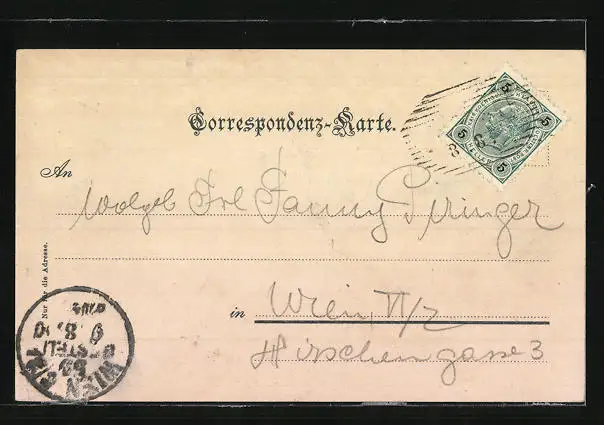 Correspondenz-Karte.
An
Wolgeb Frl Fanny Springer
Nur für die Adresse.
in Wien, VI/2
Hirschengasse 3
WIEN
BESTELLT
5 5 5 5